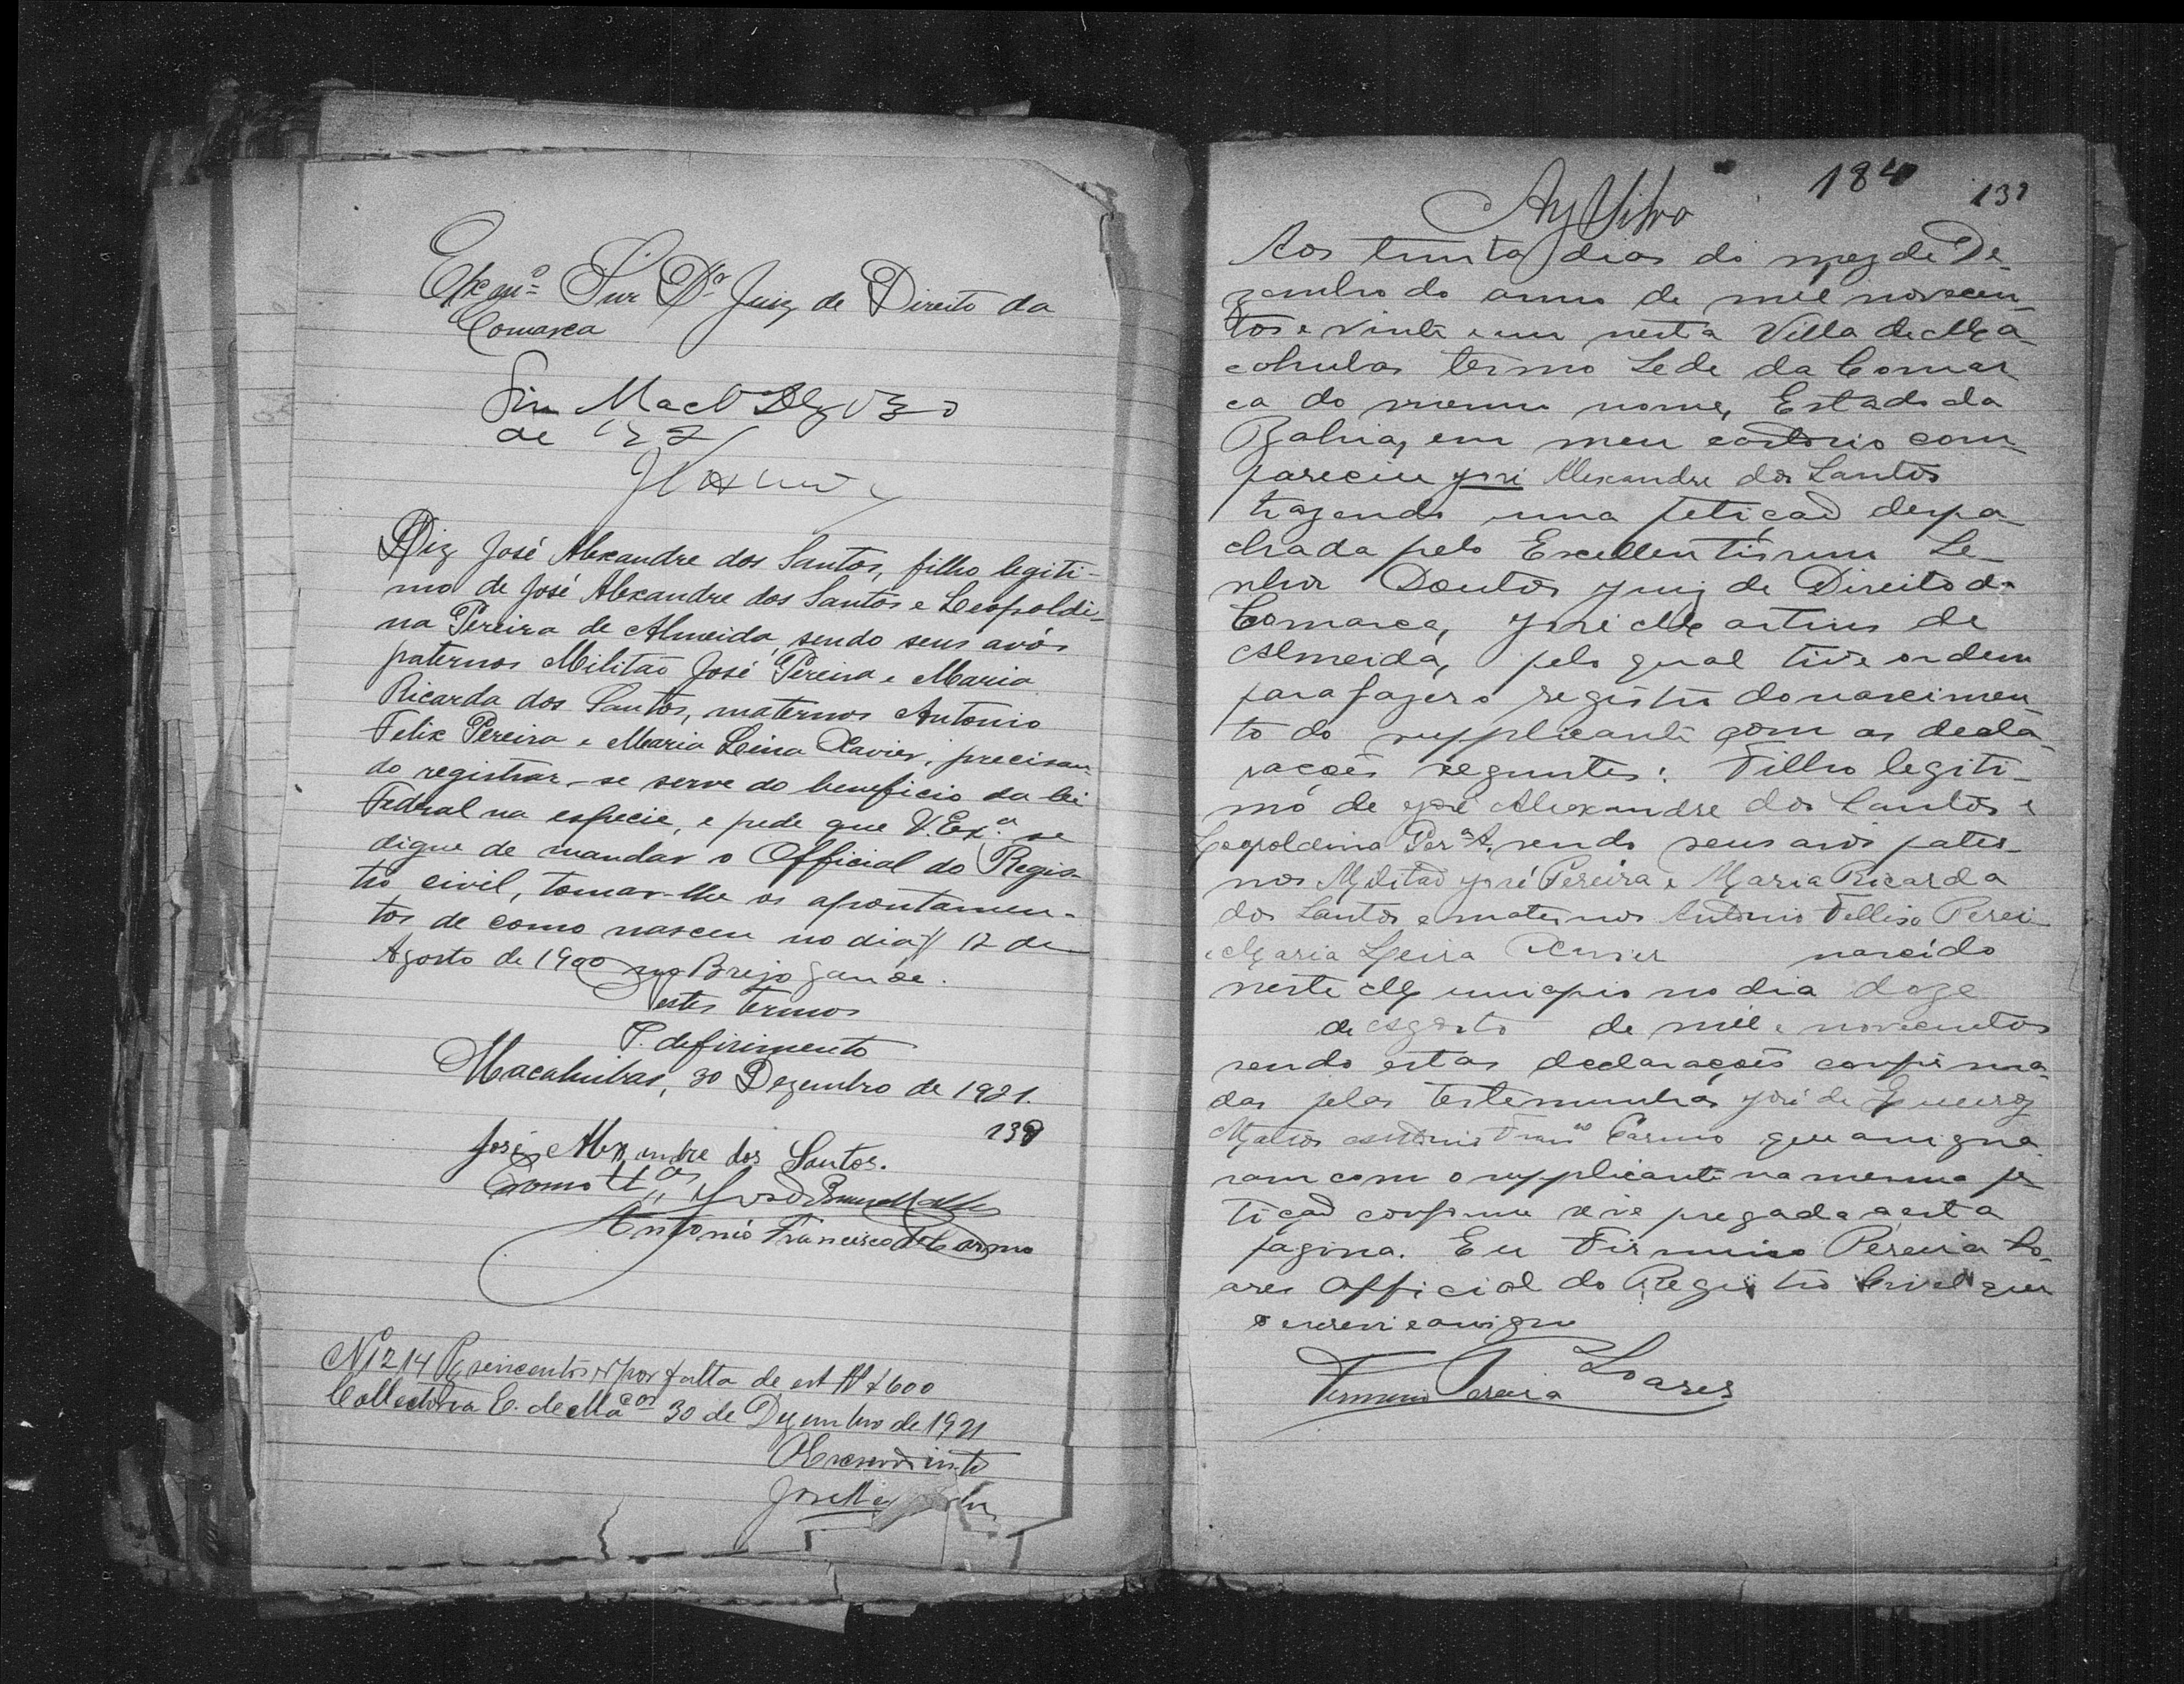 Exmº Snr Dr Juiz de Direito da
Comarca
Sim Mac
de
Diz José Alexandre dos Santos, filho legiti-
mo de José Alexandre dos Santos e Leopoldi-
na Pereira de Almeida, sendo seus avós
paternos Militão José Pereira e Maria
Ricarda dos Santos, maternos Antonio
Felix Pereira e Maria Leina Xavier, precisan-
do registrar-se serve do beneficio da lei
Federal na especie, e pede que V. Exª. se
digne de mandar o Official do Regis-
tro civil, tomar-lhe os apontamen-
tos de como nasceu no dia 12 de
Agosto de 1900 no Brejo Grande.
Nestes termos
P. defirimento
Macahubas, 30 Dezembro de 1921.
138
José Alexandre dos Santos.
Como
Antonio Francisco do Carmo
N 1214 Pg seiscentos rs por falta de est 600
Collectoria E. de Macas 30 de Dezembro de 1921
José
184 131
Aos trinta dias do mez de De-
zembro do anno de mil novecen-
tos e vinte e um nesta Villa de Ma-
cahubas termo Sede da Comar-
ca do mesmo nome, Estado da
Bahia, em meu cartorio com-
pareceu José Alexandre dos Santos
trazendo uma petição despa-
chada pelo Excellentissimo Se-
nhor Doutor Juiz de Direito da
Comarca, José Martins de
Almeida, pelo qual tive ordem
para fazer o registro do nascimen-
to do supplicante com as decla-
rações seguntes: Filho legiti-
mo de José Alexandre dos Santos e
Leopoldina Perª A. sendo seus avós pater-
nos Militão José Pereira e Maria Ricarda
dos Santos e maternos Antonio Perei
e Maria Xavier nascido
neste Municipio no dia doze
de Agosto de mil e novecentos
sendo estas declarações confirma-
das pelas testemunhas José de
Mattos Antonio Franco Carmo que assigna
ram com o supplicante na mesma pe
tição conforme se vê pregada a esta
pagina. Eu Firmino Pereira So-
ares Official do Registro Civil que
o escrevi e assigno
Firmino Pereira Soares